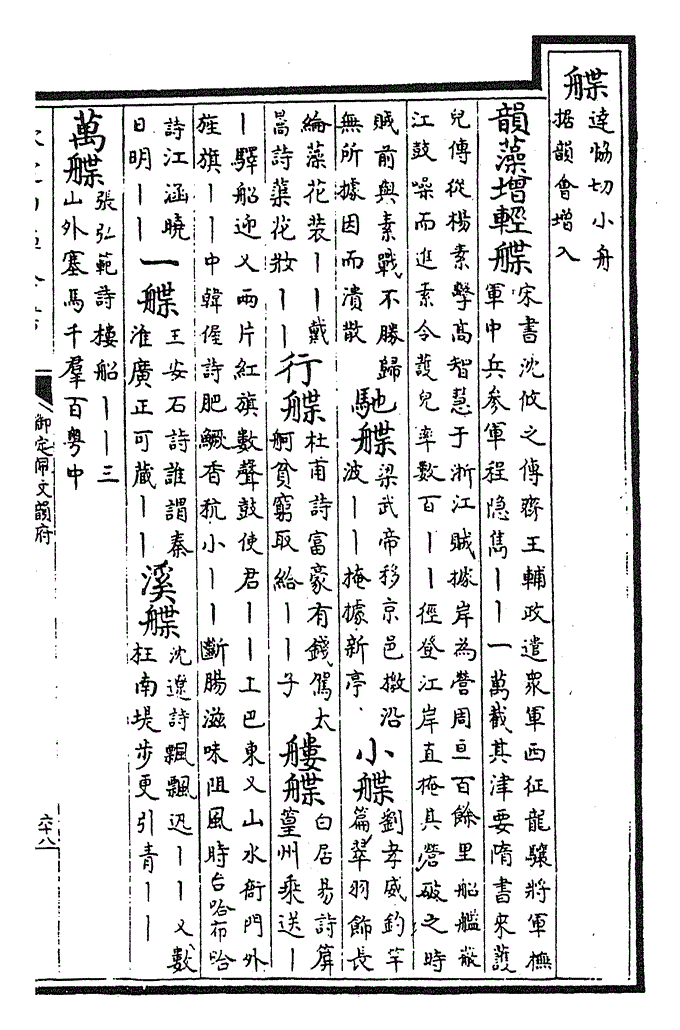 艓達協切小舟
據韻會增入
韻藻增輕艓宋書沈攸之傳齊王輔政遣衆軍西征龍驤將軍橅
軍中兵參軍程隱雋丨丨一萬截其津要隋書來護
兒傳從楊素擊高智慧于浙江賊據岸為營周亘百餘里船艦蔽
江鼓噪而進素令護兒率數百丨丨徑登江岸直掩其營破之時
賊前與素戰不勝歸
無所據因而潰散
馳艓梁武帝移京邑檄沿
波丨丨掩據新亭
小艓劉孝威釣竿
篇翠羽飾長
綸藻花装丨丨戴
暠詩蕖花妝丨丨
行艓杜甫詩富豪有錢駕大
舸貧窮取給丨丨子
艛艓白居易詩簰
篁州乘送丨
丨驛船迎又兩片紅旗數聲鼓使君丨丨上巴東又山水衙門外
旌旗丨丨中韓偓詩肥鱖香秔小丨丨斷腸滋味阻風時
詩江涵曉
日明丨丨
一艓王安石詩誰謂秦
淮廣正可藏丨丨
溪艓沈遼詩飄飄迅丨丨又數
枉南堤步更引青丨丨
萬艓張弘範詩樓船丨丨三
山外塞馬千羣百粵中
御定佩文韻府
六十八